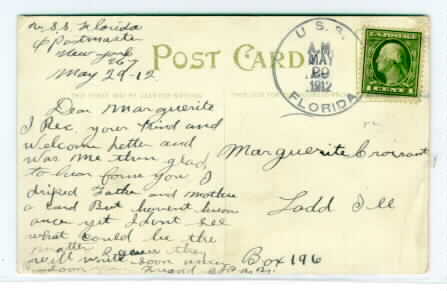 U.S.S. Florida
℅ Postmaster
New York
267
May 29-12
POST CARD
U. S. S.
A.M.
MAY
29
1912
FLORIDA
1 CENT 1
Dear Marguerite
I Rec. your kind and
welcome letter and
was me then glad
to hear form you I
droped Father and mother
a card But havent hurd
once yet I dont see
what could be the
matter I guess they
will write soon
Friend
Marguerite Croisant
Ladd Ill
Box 196